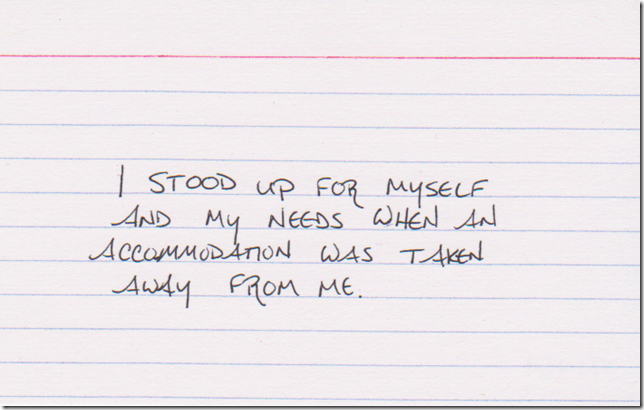 I STOOD UP FOR MYSELF
AND MY NEEDS WHEN AN
ACCOMMODATION WAS TAKEN
AWAY FROM ME.